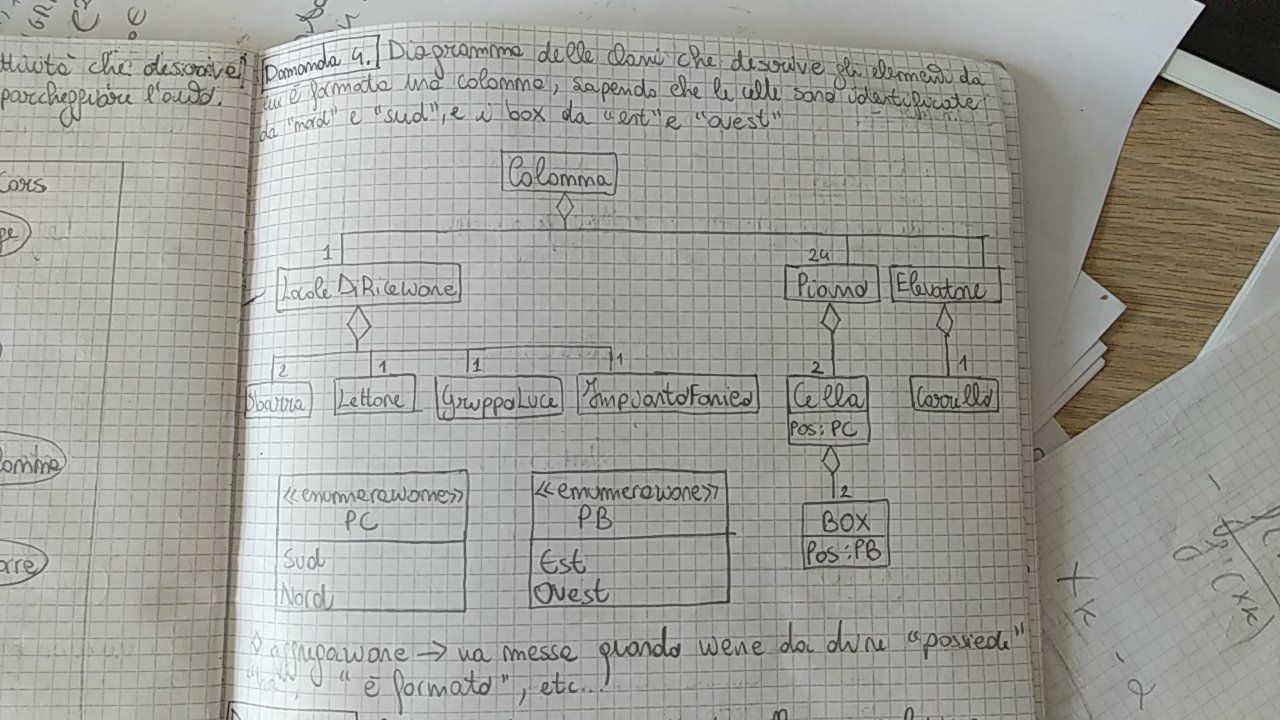 ttività che descrive
parcheggiare l'auto.
Cors
Domanda 4. Diagramma delle classi che descrive gli elementi da
cui è formata una colonna, sapendo che le celle sono identificate
da "nord" e "sud", e i box da "est" e "ovest"
Colonna
1
24
LocaleDiRicezione
Piano
Elevatore
2
1
1
1
2
1
Sbarra
Lettore
GruppoLuce
ImpiantoFonico
Cella
Carrello
Pos: PC
2
<<enumerazione>>
PC
Sud
Nord
<<enumerazione>>
PB
Est
Ovest
BOX
Pos: PB
aggregazione → va messa quando viene da dire "possiede"
"è formato", etc...